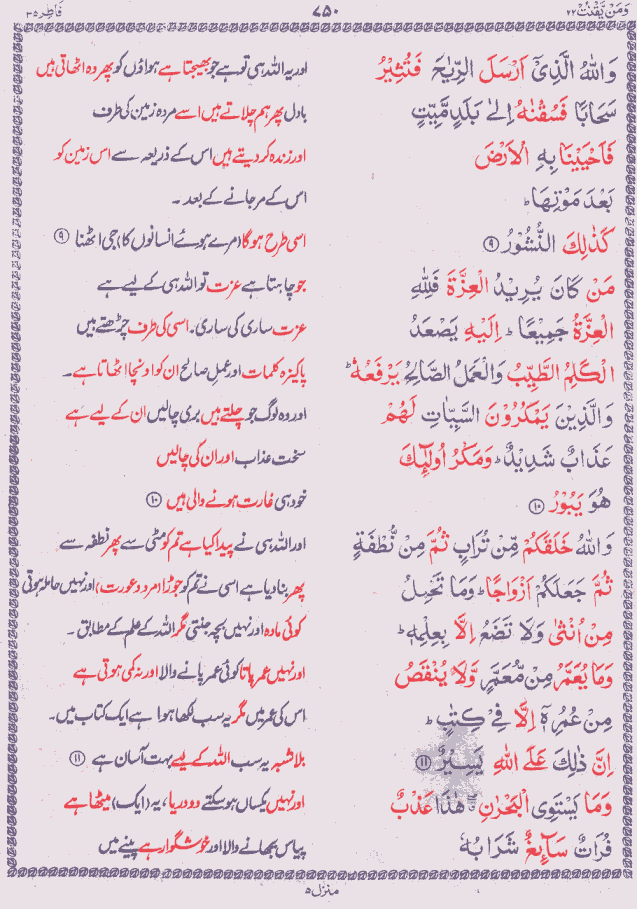 وَمَنْ يَّقْنُتْ ٢٢
٧٥٠
فَاطِر ٣٥
وَاللّٰهُ الَّذِیْۤ اَرْسَلَ الرِّیٰحَ فَتُثِیْرُ
اور یہ اللہ ہی تو ہے جو بھیجتا ہے ہواؤں کو پھر وہ اٹھاتی ہیں
سَحَابًا فَسُقْنٰهُ اِلٰی بَلَدٍ مَّیِّتٍ
بادل پھر ہم چلاتے ہیں اسے مردہ زمین کی طرف
فَاَحْیَیْنَا بِهِ الْاَرْضَ
اور زندہ کر دیتے ہیں اس کے ذریعہ سے اس زمین کو
بَعْدَ مَوْتِهَا ؕ
اس کے مر جانے کے بعد ۔
كَذٰلِكَ النُّشُوْرُ ۹
اسی طرح ہوگا (مرے ہوئے انسانوں کا) جی اٹھنا ۹
مَنْ كَانَ یُرِیْدُ الْعِزَّةَ فَلِلّٰهِ
جو چاہتا ہے عزت تو اللہ ہی کے لیے ہے
الْعِزَّةُ جَمِیْعًا ؕ اِلَیْهِ یَصْعَدُ
عزت ساری کی ساری۔ اسی کی طرف چڑھتے ہیں
الْكَلِمُ الطَّیِّبُ وَالْعَمَلُ الصَّالِحُ یَرْفَعُهٗ ؕ
پاکیزہ کلمات اور عمل صالح ان کو اونچا اٹھاتا ہے۔
وَالَّذِیْنَ یَمْكُرُوْنَ السَّیِّاٰتِ لَهُمْ
اور وہ لوگ جو چلتے ہیں بری چالیں ان کے لیے ہے
عَذَابٌ شَدِیْدٌ ؕ وَمَكْرُ اُولٰٓئِكَ
سخت عذاب اور ان کی چالیں
هُوَ یَبُوْرُ ۱۰
خود ہی غارت ہونے والی ہیں ۱۰
وَاللّٰهُ خَلَقَكُمْ مِّنْ تُرَابٍ ثُمَّ مِنْ نُّطْفَةٍ
اور اللہ ہی نے پیدا کیا ہے تم کو مٹی سے پھر نطفہ سے
ثُمَّ جَعَلَكُمْ اَزْوَاجًا ؕ وَمَا تَحْمِلُ
پھر بنا دیا ہے اسی نے تم کو جوڑا (مرد و عورت) اور نہیں حاملہ ہوتی
مِنْ اُنْثٰی وَلَا تَضَعُ اِلَّا بِعِلْمِهٖ ؕ
کوئی مادہ اور نہیں بچہ جنتی مگر اللہ کے علم کے مطابق ۔
وَمَا یُعَمَّرُ مِنْ مُّعَمَّرٍ وَّلَا یُنْقَصُ
اور نہیں عمر پاتا کوئی عمر پانے والا اور نہ کمی ہوتی ہے
مِنْ عُمُرِهٖۤ اِلَّا فِیْ كِتٰبٍ ؕ
اس کی عمر میں مگر یہ سب لکھا ہوا ہے ایک کتاب میں۔
اِنَّ ذٰلِكَ عَلَی اللّٰهِ یَسِیْرٌ ۱۱
بلاشبہ یہ سب اللہ کے لیے بہت آسان ہے ۱۱
وَمَا یَسْتَوِی الْبَحْرٰنِ ۖ هٰذَا عَذْبٌ
اور نہیں یکساں ہو سکتے دو دریا، یہ (ایک) میٹھا ہے
فُرَاتٌ سَآئِغٌ شَرَابُهٗ
پیاس بجھانے والا اور خوشگوار ہے پینے میں
منزل ۵